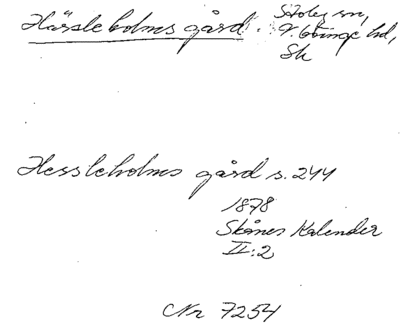 Hässleholms gård. Stoby sn,
V. Göinge hd,
Sk
Hessleholms gård s. 244
1878
Skånes Kalender
II:2
Nr 7254